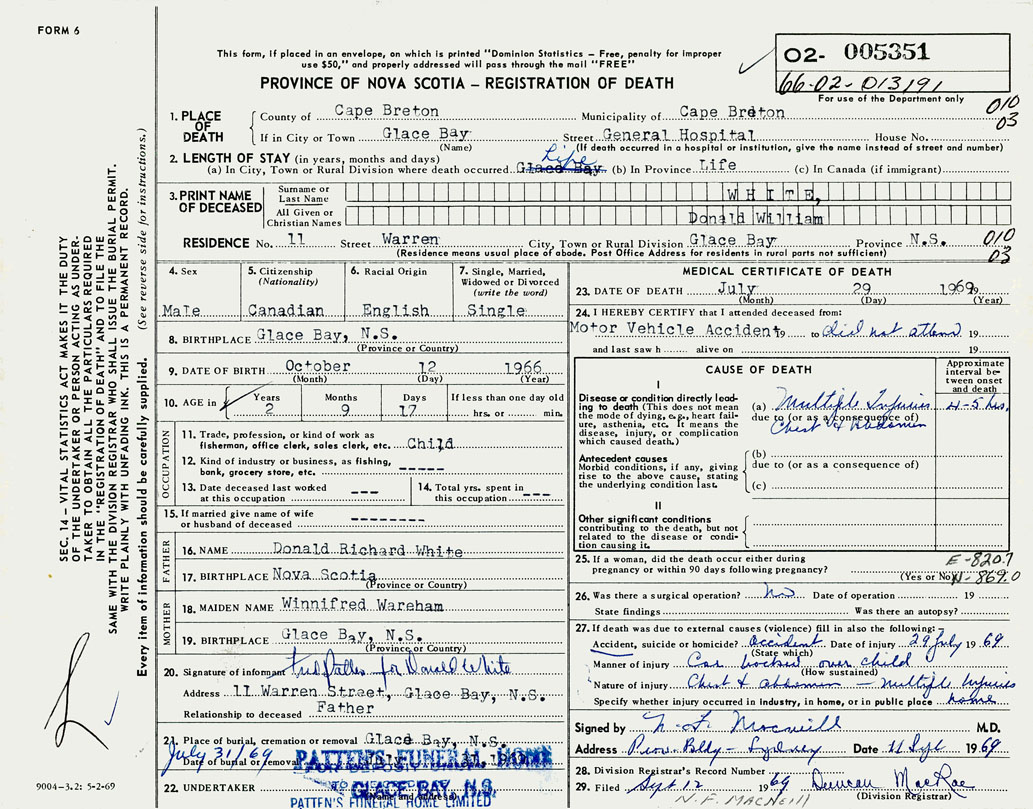 FORM 6
This form, if placed in an envelope, on which is printed "Dominion Statistics – Free, penalty for improper
use $50," and properly addressed will pass through the mail "FREE"
PROVINCE OF NOVA SCOTIA – REGISTRATION OF DEATH
02- 005351
66-02-013191
For use of the Department only
010
03
1. PLACE OF DEATH
County of Cape Breton Municipality of Cape Breton
If in City or Town Glace Bay Street General Hospital House No.
(Name) (If death occurred in a hospital or institution, give the name instead of street and number)
2. LENGTH OF STAY (in years, months and days)
Life
(a) In City, Town or Rural Division where death occurred Glace Bay (b) In Province Life (c) In Canada (if immigrant)
3. PRINT NAME OF DECEASED
Surname or Last Name WHITE,
All Given or Christian Names Donald William
RESIDENCE No. 11 Street Warren City, Town or Rural Division Glace Bay Province N.S.
(Residence means usual place of abode. Post Office Address for residents in rural parts not sufficient)
010
03
4. Sex
Male
5. Citizenship (Nationality)
Canadian
6. Racial Origin
English
7. Single, Married, Widowed or Divorced (write the word)
Single
8. BIRTHPLACE Glace Bay, N.S.
(Province or Country)
9. DATE OF BIRTH October 12 1966
(Month) (Day) (Year)
10. AGE in Years Months Days If less than one day old
2 9 17 hrs. or min.
OCCUPATION
11. Trade, profession, or kind of work as
fisherman, office clerk, sales clerk, etc. Child
12. Kind of industry or business, as fishing,
bank, grocery store, etc. -----
13. Date deceased last worked
at this occupation ---
14. Total yrs. spent in
this occupation ---
15. If married give name of wife
or husband of deceased --------
FATHER
16. NAME Donald Richard White
17. BIRTHPLACE Nova Scotia
(Province or Country)
MOTHER
18. MAIDEN NAME Winnifred Wareham
19. BIRTHPLACE Glace Bay, N.S.
(Province or Country)
20. Signature of informant for Donald White
Address 11 Warren Street, Glace Bay, N.S.
Relationship to deceased Father
21. Place of burial, cremation or removal Glace Bay, N.S.
July 31/69
Date of burial or removal
PATTEN'S FUNERAL HOME
22. UNDERTAKER
GLACE BAY, N.S.
(Name and address)
PATTEN'S FUNERAL HOME LIMITED
MEDICAL CERTIFICATE OF DEATH
23. DATE OF DEATH July 29 1969
(Month) (Day) (Year)
24. I HEREBY CERTIFY that I attended deceased from:
Motor Vehicle Accident 19 to did not attend 19
and last saw h alive on 19
CAUSE OF DEATH
Approximate interval between onset and death
I
Disease or condition directly leading to death (This does not
the mode of dying, e.g., heart failure, asthenia, etc. It means the
disease, injury, or complication
which caused death.)
(a) Multiple Injuries 4-5 hrs.
due to (or as a consequence of)
Chest & Abdomen
Antecedent causes
Morbid conditions, if any, giving
rise to the above cause, stating
the underlying condition last.
(b)
due to (or as a consequence of)
(c)
II
Other significant conditions
contributing to the death, but not
related to the disease or condition causing it.
25. If a woman, did the death occur either during
pregnancy or within 90 days following pregnancy?
(Yes or No)
E-820.7
N-869.0
26. Was there a surgical operation? no Date of operation 19
State findings Was there an autopsy?
27. If death was due to external causes (violence) fill in also the following:–
Accident, suicide or homicide? accident Date of injury 29 July 1969
(State which)
Manner of injury Car backed over child
(How sustained)
Nature of injury Chest & abdomen – multiple injuries
Specify whether injury occurred in industry, in home, or in public place home
Signed by M.D.
Address Prov. Bldg – Sydney Date 11 Sept 1969
28. Division Registrar's Record Number
29. Filed Sept 12 1969 Duncan MacRae
(Division Registrar)
N.F. MACNEILL
SEC. 14 – VITAL STATISTICS ACT MAKES IT THE DUTY
OF THE UNDERTAKER OR PERSON ACTING AS UNDERTAKER TO OBTAIN ALL THE PARTICULARS REQUIRED
IN THE "REGISTRATION OF DEATH" AND TO FILE THE
SAME WITH THE DIVISION REGISTRAR WHO SHALL ISSUE THE BURIAL PERMIT.
WRITE PLAINLY WITH UNFADING INK. THIS IS A PERMANENT RECORD.
Every item of information should be carefully supplied. (See reverse side for instructions.)
9004–3.2: 5-2-69